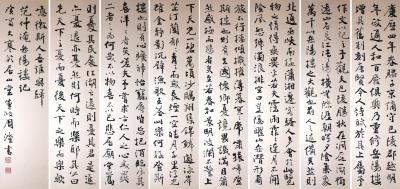 慶曆四年春滕子京謫守巴陵郡越明
年政通人和百廢具興乃重修岳陽樓
增其舊制刻唐賢今人詩賦於其上屬予
作文以記之予觀夫巴陵勝狀在洞庭一湖
銜遠山吞長江浩浩湯湯橫無際涯朝暉夕陰氣象
萬千此則岳陽樓之大觀也前人之述備矣然則
北通巫峽南極瀟湘遷客騷人多會於此覽
物之情得無異乎若夫霪雨霏霏連月不開
陰風怒號濁浪排空日星隱耀山岳潛形商
旅不行檣傾楫摧薄暮冥冥虎嘯猿啼登
斯樓也則有去國懷鄉憂讒畏譏滿目蕭然感
極而悲者矣至若春和景明波瀾不驚上
下天光一碧萬頃沙鷗翔集錦鱗游泳岸
芷汀蘭郁郁青青而或長煙一空皓月千里浮光
躍金靜影沉璧漁歌互答此樂何極登斯
樓也則有心曠神怡寵辱皆忘把酒臨風其
喜洋洋者矣嗟夫予嘗求古仁人之心或異
二者之為何哉不以物喜不以己悲居廟堂之高
則憂其民處江湖之遠則憂其君是進
亦憂退亦憂然則何時而樂耶其必曰
先天下之憂而憂後天下之樂而樂歟
噫微斯人吾誰與歸
范仲淹岳陽樓記
大寒於居一堂 書